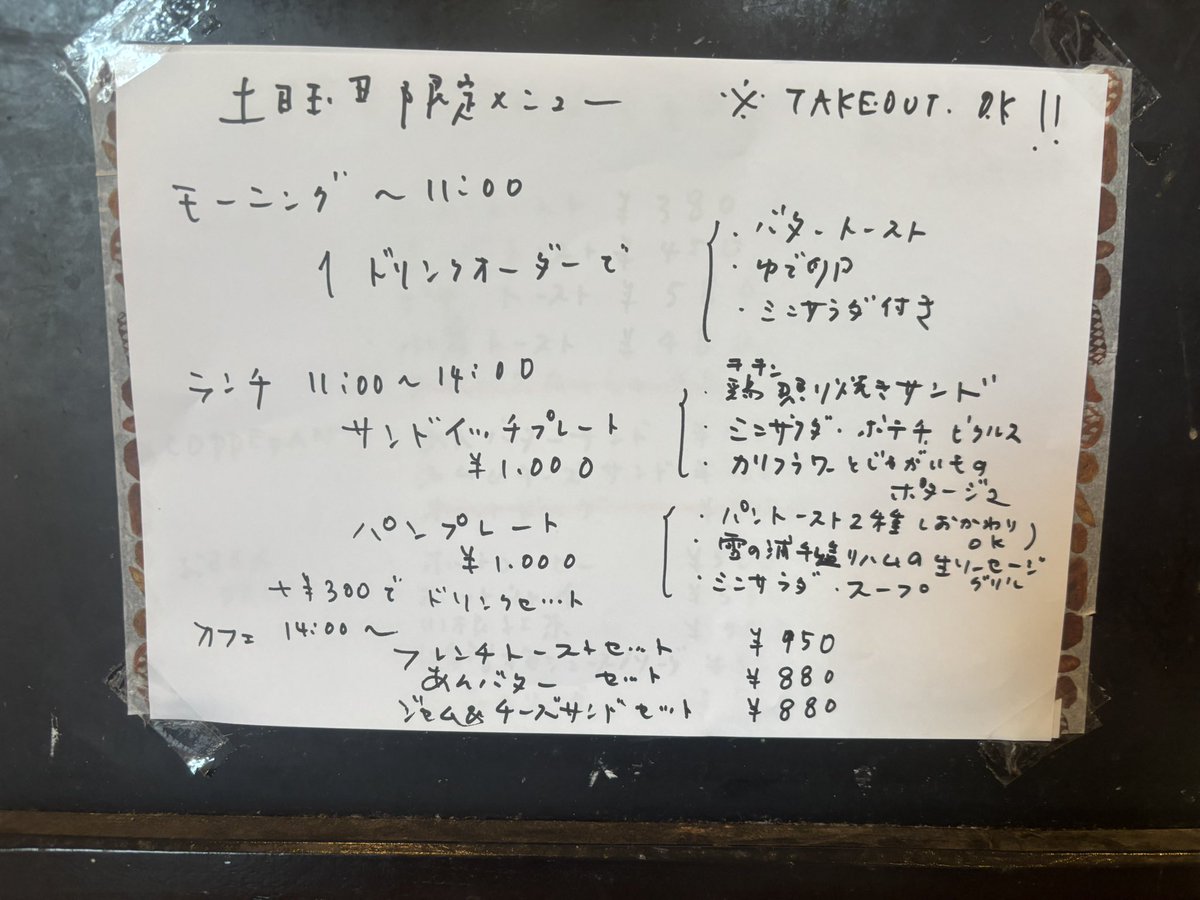 土日玉.日 限定メニュー ※ TAKEOUT. OK!!
モーニング ～11:00
1 ドリンクオーダーで
・バタートースト
・ゆで卵
・ミニサラダ付き
ランチ 11:00～14:00
サンドイッチプレート
¥1.000
チキン
・鶏照り焼きサンド
・ミニサラダ・ポテチ ピクルス
・カリフラワーとじゃがいもの
ポタージュ
パンプレート
¥1.000
・パントースト2種(おかわり
OK)
・雪の浦手塩りハムの生ソーセージ
グリル
・ミニサラダ・スープ
+¥300で ドリンクセット
カフェ 14:00～
フレンチトーストセット ¥950
あんバター セット ¥880
ジャム&チーズサンドセット ¥880